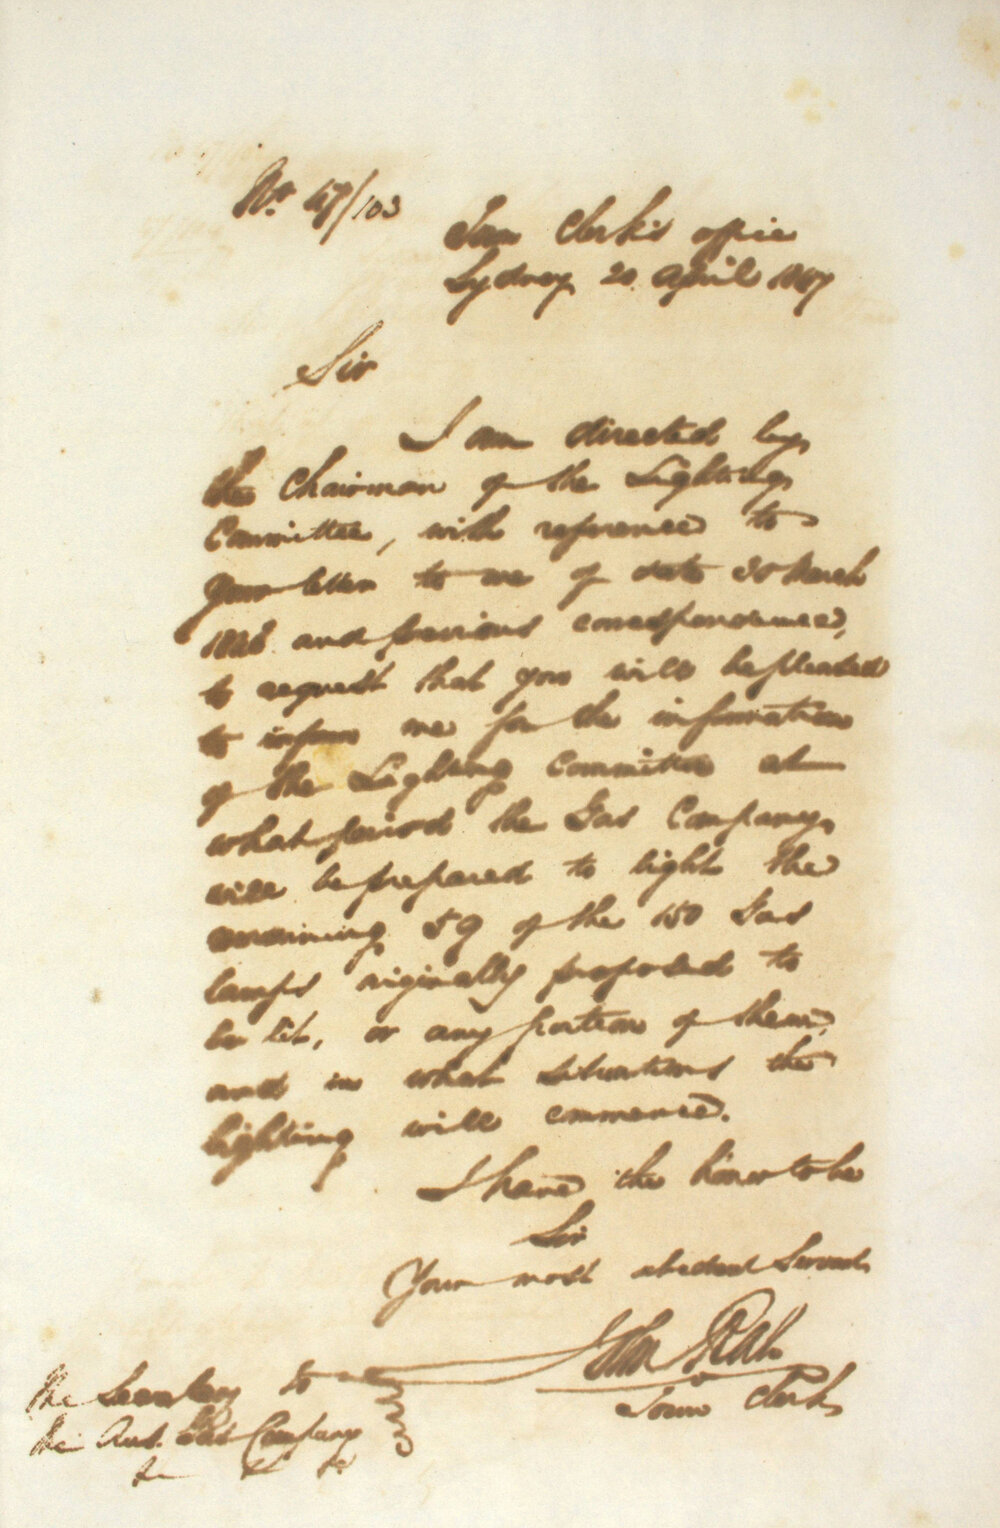 No. 47/103
Town Clerk's office
Sydney 20 April 1847
Sir
I am directed by
the Chairman of the Lighting
Committee, with reference to
your letter to me of date 30 March
and previous correspondence,
to request that you will be pleased
to inform me for the information
of the Lighting Committee at
what period the Gas Company
will be prepared to light the
remaining 59 of the 150 Gas
lamps originally proposed to
be lit, or any portion of them,
and in what situations the
lighting will commence.
I have the honor to be
Sir
Your most obedient Servant
John
Town Clerk
The Secretary to
the Aust. Gas Company